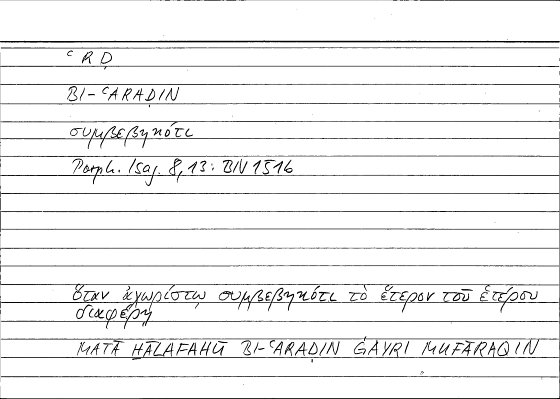 ʿRḌ
BI-ʿARAḌIN
συμβεβηκότι
Porph. Isag. 8,13: BN 151b
ὅταν ἀχωρίστῳ συμβεβηκότι τὸ ἕτερον τοῦ ἑτέρου
διαφέρῃ
MATĀ ḪĀLAFAHŪ BI-ʿARAḌIN ĠAYRI MUFĀRAQIN